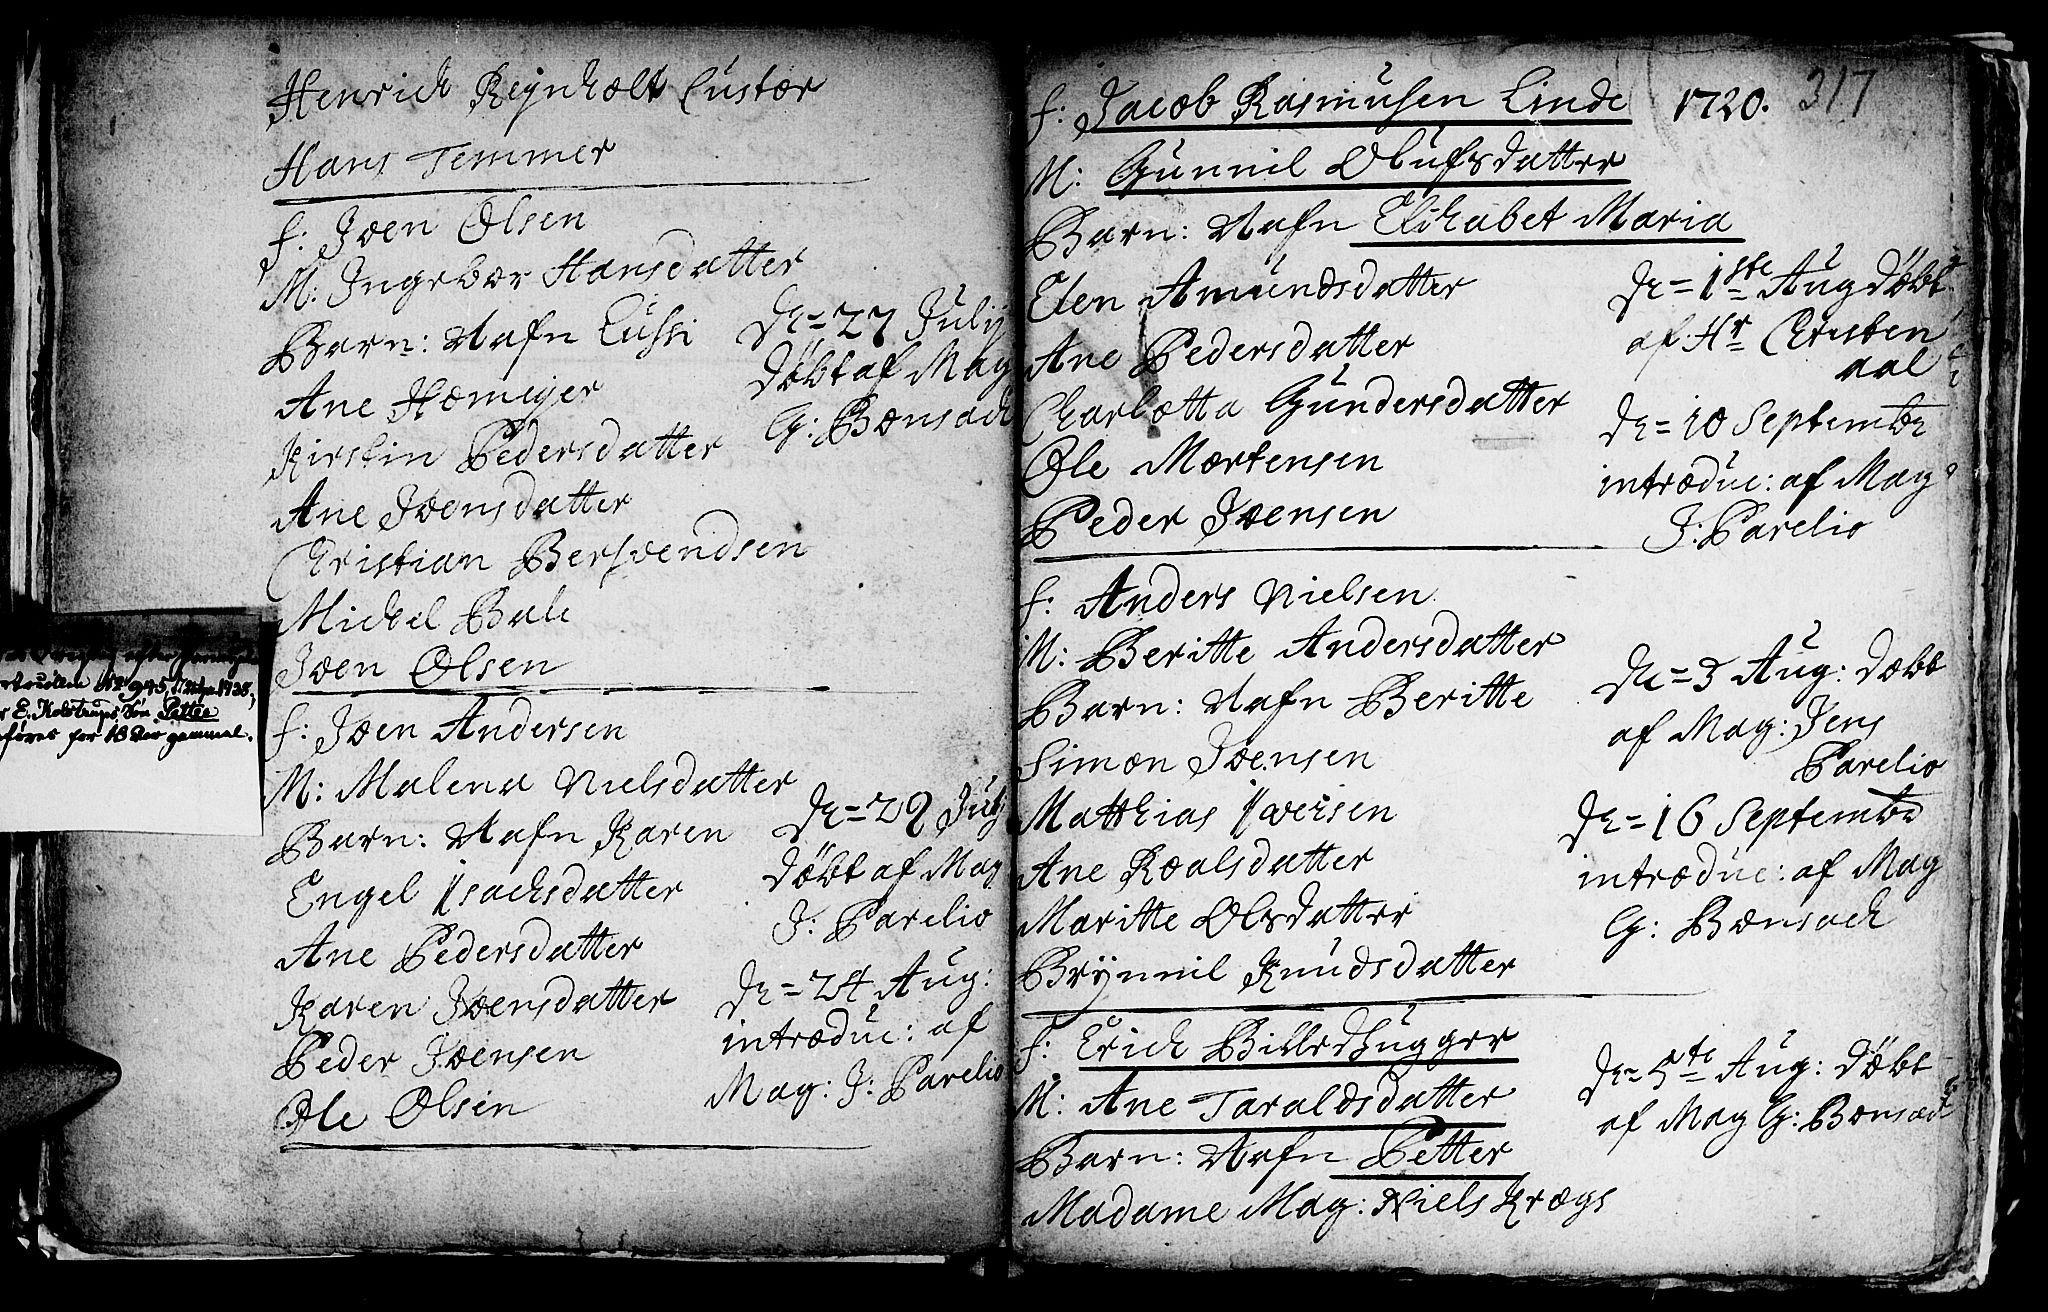 Henrich Reijnholt Custor
Hans Temmer
f: Joen Olsen
M: Ingebor Hansdatter
Barn: Nafn Lussi
Ane Homeyer
Kirstin Pedersdatter
Ane Joensdatter
Christian Bersvendsen
Michel Bule
Joen Olsen
D= 27 July
döbt af Mag
G: Bonsach
f: Joen Andersen
M: Malena Nielsdatter
Barn: Nafn Karen
Engel Isachsdatter
Ane Pedersdatter
Karen Joensdatter
Peder Joensen
Ole Olsen
D= 29 July
döbt af Mag
J: Parelio
D= 24 Aug:
introduc: af
Mag: J: Parelio
E. Kolstrups Sön Petter
for 18 Aar gammel.
317
1720.
f: Jacob Rasmusen Linde
M: Gunnil Olufsdatter
Barn: Nafn Elisabet Maria
Elen Amundsdatter
Ane Pedersdatter
Charlotta Gundersdatter
Ole Mortensen
Peder Joensen
D= 1ste Aug döbt
af Hr Christen
Aal
D= 10 Septembr
introduc: af Mag
J: Parelio
f: Anders Nielsen
M: Beritte Andersdatter
Barn: Nafn Beritte
Simon Joensen
Matthias Iversen
Ane Roalsdatter
Maritte Olsdatter
Brynnil Knudsdatter
D= 3 Aug: döbt
af Mag: Jens
Parelio
D= 16 Septembr
introduc: af Mag
G: Bonsach
f: Erich Billedhugger
M: Ane Taraldsdatter
Barn: Nafn Petter
Madame Mag: Niels Krogs
D= 5te Aug: döbt
af Mag G: Bonsach